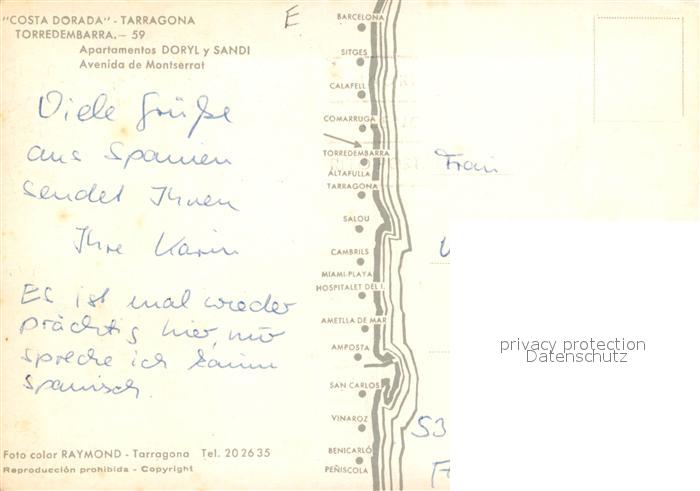 "COSTA DORADA" - TARRAGONA
TORREDEMBARRA.- 59
Apartamentos DORYL y SANDI
Avenida de Montserrat
E
Viele Grüße
aus Spanien
sendet Ihnen
Ihre Karin
Es ist mal wieder
prächtig hier, nur
spreche ich kaum
spanisch.
Foto color RAYMOND - Tarragona Tel. 20 26 35
Reproducción prohibida - Copyright
BARCELONA
SITGES
CALAFELL
COMARRUGA
TORREDEMBARRA
ALTAFULLA
TARRAGONA
SALOU
CAMBRILS
MIAMI-PLAYA
HOSPITALET DEL I.
AMETLLA DE MAR
AMPOSTA
SAN CARLOS
VINAROZ
BENICARLÓ
PEÑISCOLA
Frau
53
privacy protection
Datenschutz